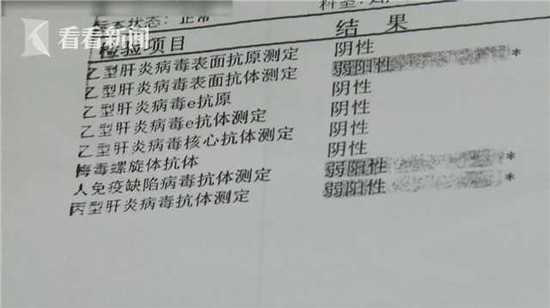 状态：正常 科室：
看看新闻
检验项目 结 果
乙型肝炎病毒表面抗原测定 阴性
乙型肝炎病毒表面抗体测定 弱阳性 *
乙型肝炎病毒e抗原 阴性
乙型肝炎病毒e抗体测定 阴性
乙型肝炎病毒核心抗体测定 阴性
梅毒螺旋体抗体 阴性
人免疫缺陷病毒抗体测定 弱阳性 *
丙型肝炎病毒抗体测定 弱阳性 *